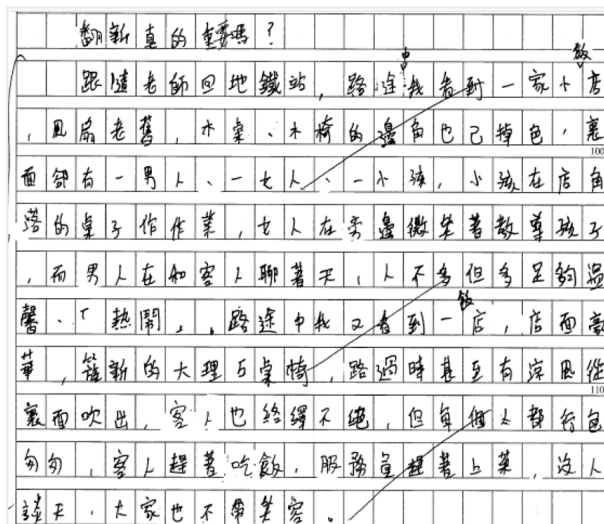 翻新真的重要嗎？
跟隨老師回地鐵站，路途中我看到一家小飯店
，風扇老舊，木桌、木椅的邊角也已掉色，裏
100
面卻有一男人、一女人、一小孩，小孩在店角
落的桌子作作業，女人在旁邊微笑著教導孩子
，而男人在和客人聊著天，人不多但多足夠溫
馨、熱鬧，路途中我又看到一飯店，店面豪
華，簇新的大理石桌椅，路過時甚至有涼風從
110
裏面吹出，客人也絡繹不絕，但每個人都行色
匆匆，客人趕著吃飯，服務員趕著上菜，沒人
談天，大家也不帶笑容。